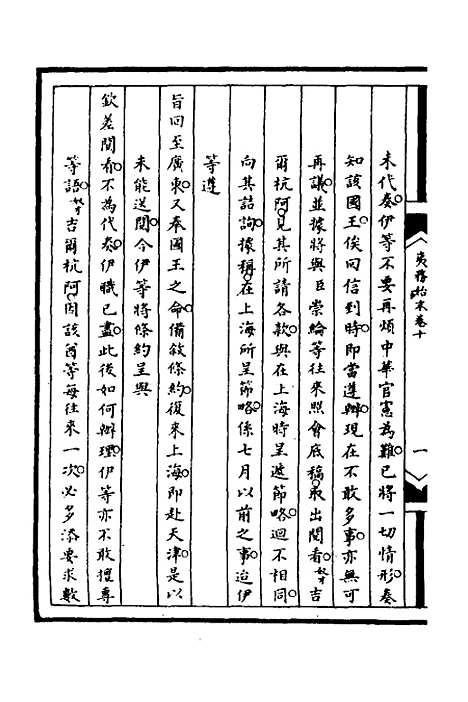 夷務始末卷十
一
未代奏伊等不要再煩中華官憲為難已將一切情形奏
知該國王俟回信到時即當遵辦現在不敢多事亦無可
再議並據將與臣崇綸等往來照會底稿取出閱看奴才吉
爾杭阿見其所請各款與在上海時呈遞節略迴不相同
向其詰詢據稱在上海所呈節略係七月以前之事迨伊
等遵
旨回至廣東又奉國王之命備敘條約復來上海即赴天津是以
未能送閱今伊等將條約呈與
欽差閱看不為代奏伊職已盡此後如何辦理伊等亦不敢擅專
等語奴才吉爾杭阿因該酋等每往來一次必多添要求數